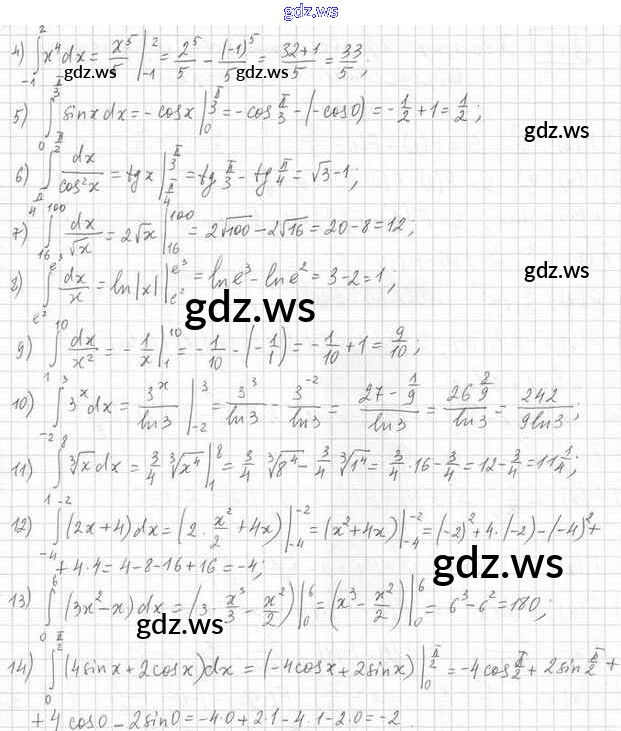 gdz.ws
4) ∫_{-1}^{2} x⁴dx = x⁵/5 |_{-1}^{2} = 2⁵/5 - (-1)⁵/5 = 32+1/5 = 33/5;
gdz.ws gdz.ws
5) ∫_{0}^{π/3} sinx dx = -cosx |_{0}^{π/3} = -cos π/3 - (-cos0) = -1/2 + 1 = 1/2;
gdz.ws
6) ∫_{π/4}^{π/2} dx/cos²x = tgx |_{π/4}^{π/3} = tg π/3 - tg π/4 = √3 - 1;
7) ∫_{16}^{100} dx/√x = 2√x |_{16}^{100} = 2√100 - 2√16 = 20 - 8 = 12;
gdz.ws
8) ∫_{e²}^{e³} dx/x = ln|x| |_{e²}^{e³} = lne³ - lne² = 3 - 2 = 1;
gdz.ws
9) ∫_{1}^{10} dx/x² = -1/x |_{1}^{10} = -1/10 - (-1/1) = -1/10 + 1 = 9/10;
10) ∫_{-2}^{3} 3ˣdx = 3ˣ/ln3 |_{-2}^{3} = 3³/ln3 - 3⁻²/ln3 = 27 - 1/9/ln3 = 26 8/9/ln3 = 242/9ln3;
11) ∫_{1}^{8} ∛x dx = 3/4 ∛x⁴ |_{1}^{8} = 3/4 ∛8⁴ - 3/4 ∛1⁴ = 3/4·16 - 3/4 = 12 - 3/4 = 11 1/4;
12) ∫_{-4}^{-2} (2x+4)dx = (2·x²/2 + 4x) |_{-4}^{-2} = (x²+4x) |_{-4}^{-2} = (-2)² + 4·(-2) - (-4)² +
+ 4·4 = 4-8-16+16 = -4;
gdz.ws
13) ∫_{0}^{6} (3x²-x)dx = (3·x³/3 - x²/2) |_{0}^{6} = (x³ - x²/2) |_{0}^{6} = 6³ - 6² = 180;
gdz.ws
14) ∫_{0}^{π/2} (4sinx + 2cosx)dx = (-4cosx + 2sinx) |_{0}^{π/2} = -4cos π/2 + 2sin π/2 +
+ 4cos0 - 2sin0 = -4·0 + 2·1 - 4·1 - 2·0 = -2
gdz.ws